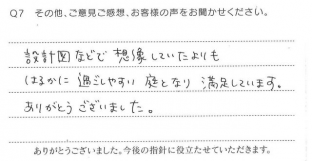 Q7 その他、ご意見ご感想、お客様の声をお聞かせください。
設計図などで想像していたよりも
はるかに過ごしやすい庭となり満足しています。
ありがとうございました。
ありがとうございました。今後の指針に役立たせていただきます。